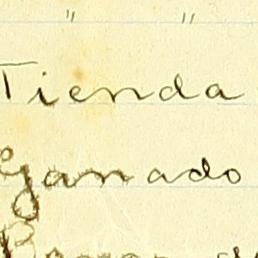 " "
Tienda
Ganado